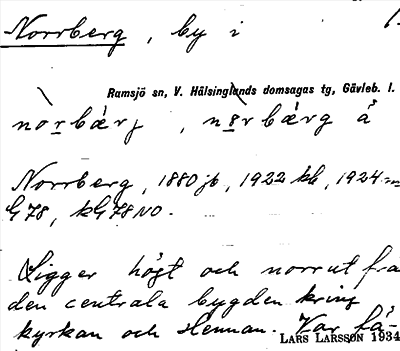 Norrberg, by i
Ramsjö sn, V. Hälsinglands domsagas tg, Gävleb. l.
norbærj, nɘrbærg å
Norrberg, 1880 jb, 1922 kb, 1924
G 78, kG78NO.
Ligger högt och norrut frå
den centrala bygden kring
kyrkan och Hennan. Var fä-
LARS LARSSON 1934